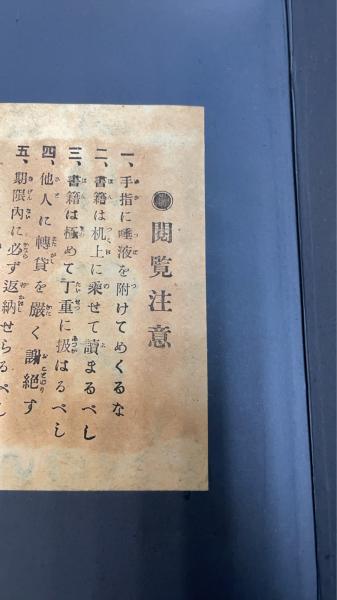 閲覧注意
一、手指に唾液を附けてめくるな
二、書籍は机上に乗せて讀まるべし
三、書籍は極めて丁重に扱はるべし
四、他人に轉貸を嚴く謝絶す
五、期限內に必ず返納せらるべし